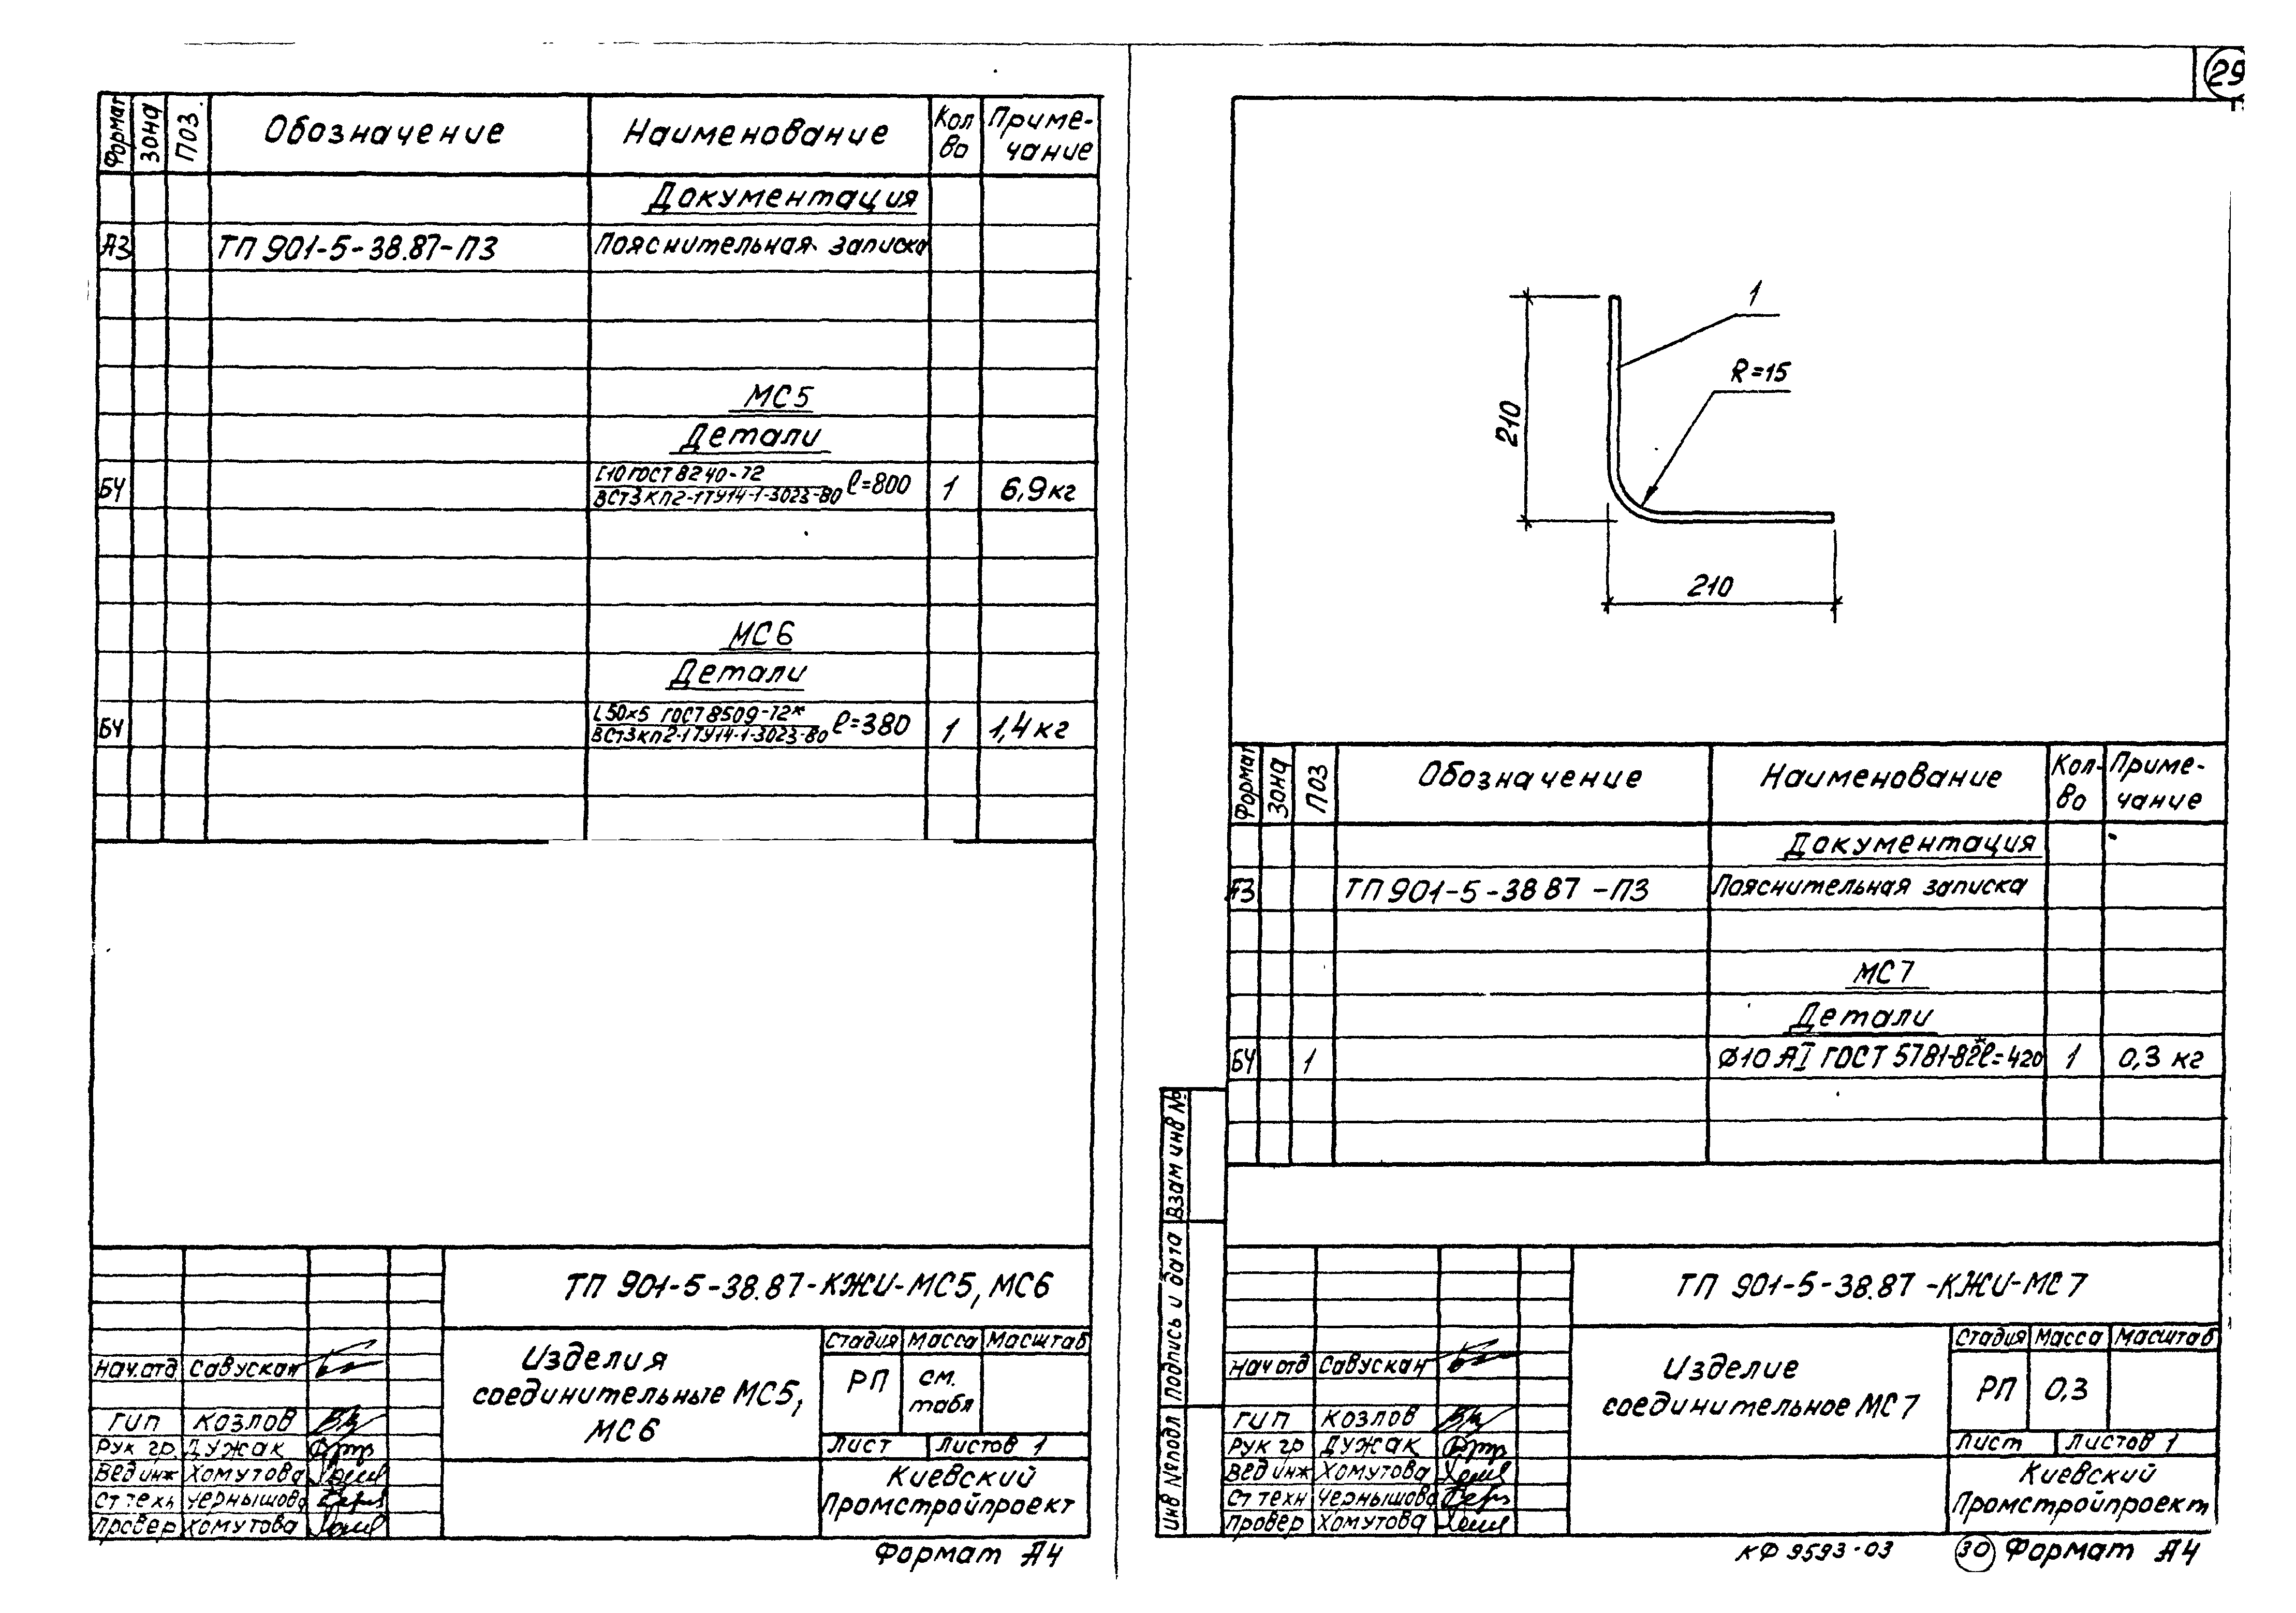 29
Формат Зона Поз. Обозначение Наименование Кол во Приме-чание
Документация
А3 ТП 901-5-38.87-ПЗ Пояснительная записка
МС5
Детали
БЧ [10 ГОСТ 8240-72 ВСт3кп2-1 ТУ14-1-3023-80 ℓ=800 1 6,9 кг
МС6
Детали
БЧ L50×5 ГОСТ 8509-72* ВСт3кп2-1 ТУ14-1-3023-80 ℓ=380 1 1,4 кг
ТП 901-5-38.87-КЖИ-МС5, МС6
Изделия
соединительные МС5,
МС6
Стадия Масса Масштаб
РП см. табл
Лист Листов 1
Киевский
Промстройпроект
Нач.отд Савускан
ГИП Козлов
Рук гр. Дужак
Вед инж Хомутова
Ст техн Чернышова
Провер Хомутова
Формат А4
1
R=15
210
210
Формат Зона Поз Обозначение Наименование Кол-во Приме-чание
Документация
А3 ТП 901-5-38 87 -ПЗ Пояснительная записка
МС7
Детали
БЧ 1 Ø10 АI ГОСТ 5781-82* ℓ=420 1 0,3 кг
Взам инв №
Подпись и дата
Инв № подл
ТП 901-5-38.87 -КЖИ-МС7
Изделие
соединительное МС7
Стадия Масса Масштаб
РП 0,3
Лист Листов 1
Киевский
Промстройпроект
Нач отд Савускан
ГИП Козлов
Рук гр Дужак
Вед инж Хомутова
Ст техн Чернышова
Провер Хомутова
КФ 9593-03 30 Формат А4